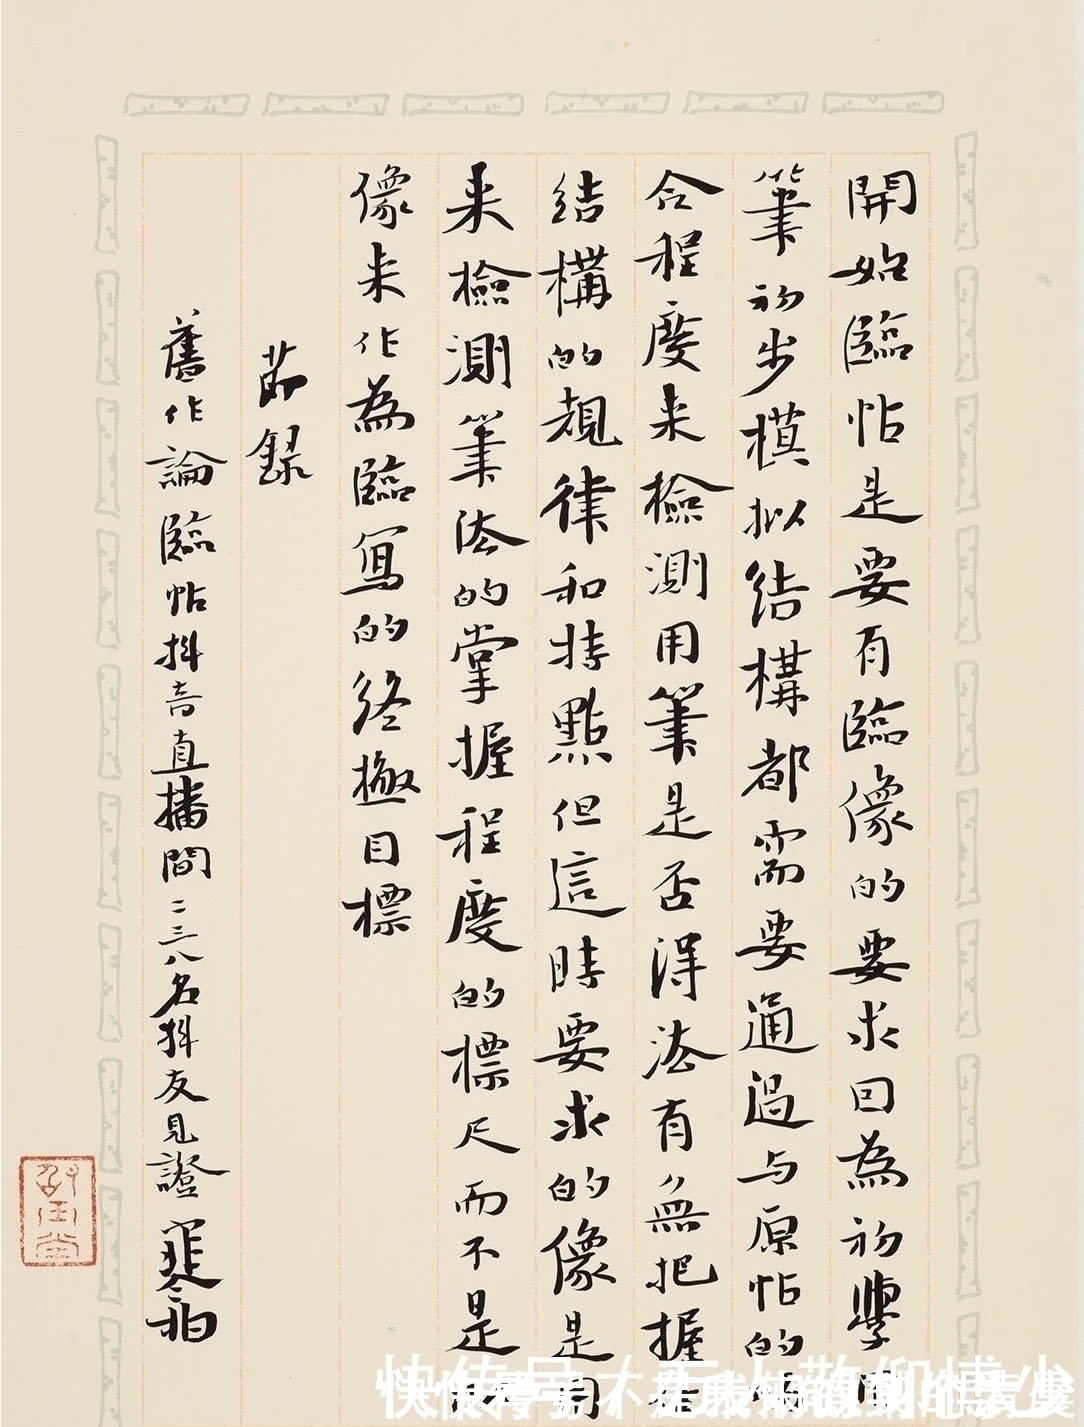 開始臨帖是要有臨像的要求囙為初學
筆初步模拟結構都需要通過与原帖的
合程度来檢測用筆是否得法有無把握
結構的規律和特點但這時要求的像是用
来檢測筆法的掌握程度的標尺而不是
像来作為臨寫的終極目標
節錄
舊作論臨帖抖音直播間二三八名抖友見證
快传号/